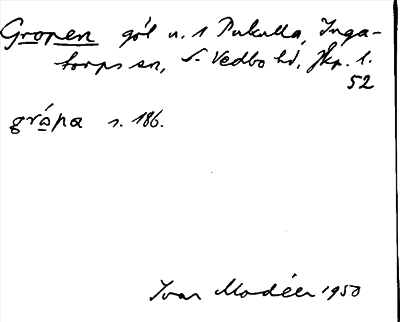 Gropen göl u. 1 Pukulla, Inga-
torps sn, S. Vedbo hd, Jkp. l.
52
gråpa s. 186.
Ivar Modéer 1950